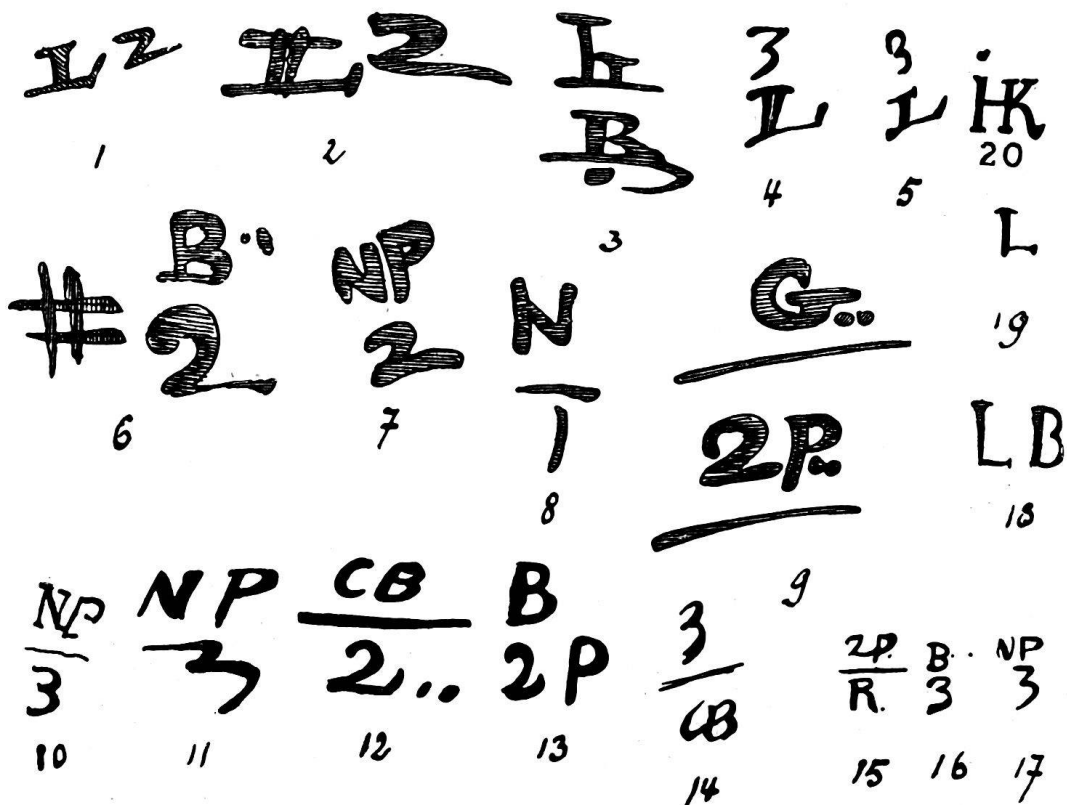 L 2
1
IL 2
2
L
B.
3
3
L
4
3
L
5
iHK
20
L
19
# B..
2
6
NP
2
7
N
1
8
G..
2P..
9
LB
18
NP
3
10
NP
3
11
CB
2..
12
B
2P
13
3
CB
14
2P.
R.
15
B..
3
16
NP
3
17